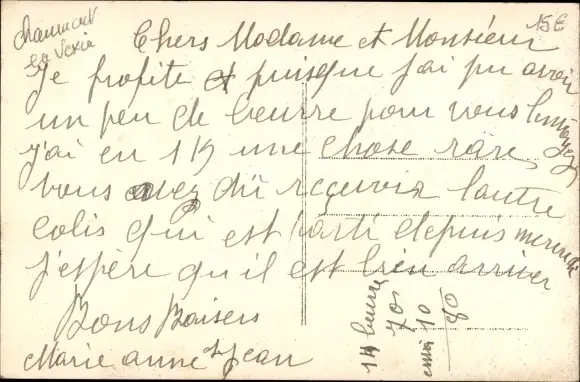 chaumont
en Vexin
15€
Chers Madame et Monsieur
Je profite et puisque j'ai pu avoir
un peu de beurre pour vous l'envoyez
j'ai eu 1 K une chose rare
vous avez dü recevoir l'autre
colis qui est parti depuis mercredi
j'espère qu'il est bien arriver
Bons Baisers
Marie anne et Jean
1K beurre
70s
10
80